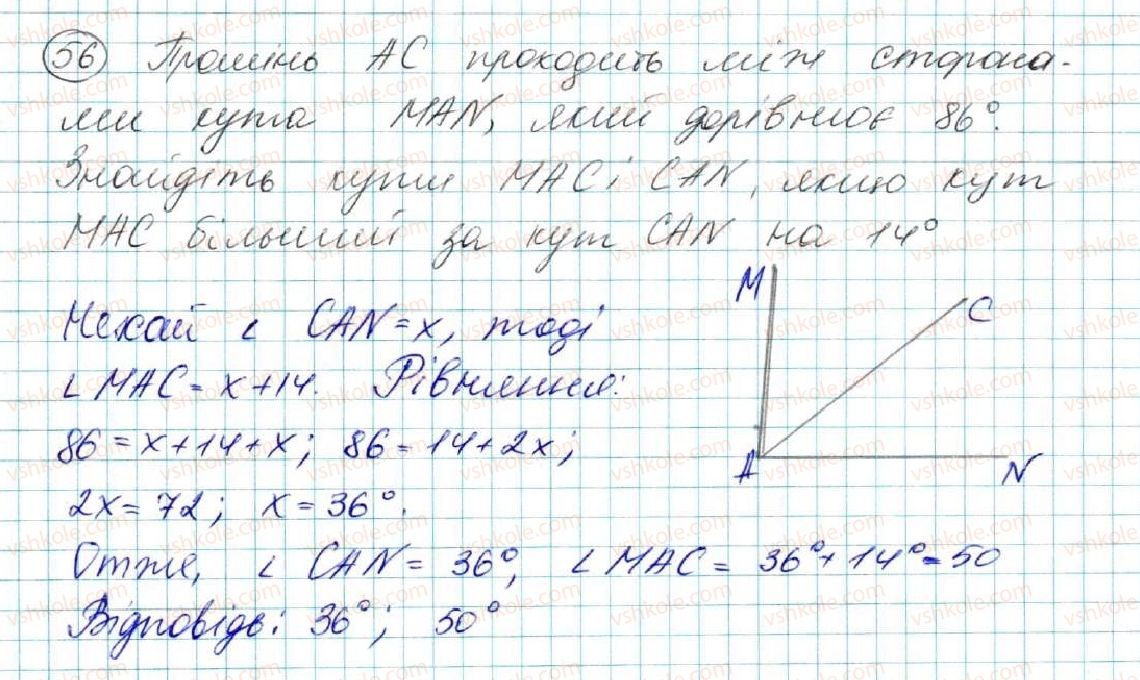 56 Промінь AC проходить між сторона-
ми кута MAN, який дорівнює 86°.
Знайдіть кути MAC і CAN, якщо кут
MAC більший за кут CAN на 14°
M
C
Нехай ∠ CAN = x, тоді
∠ MAC = x + 14. Рівняння:
86 = x + 14 + x; 86 = 14 + 2x;
A
N
2x = 72; x = 36°.
Отже, ∠ CAN = 36°, ∠ MAC = 36° + 14° = 50
Відповідь: 36°; 50°
vshkole.com